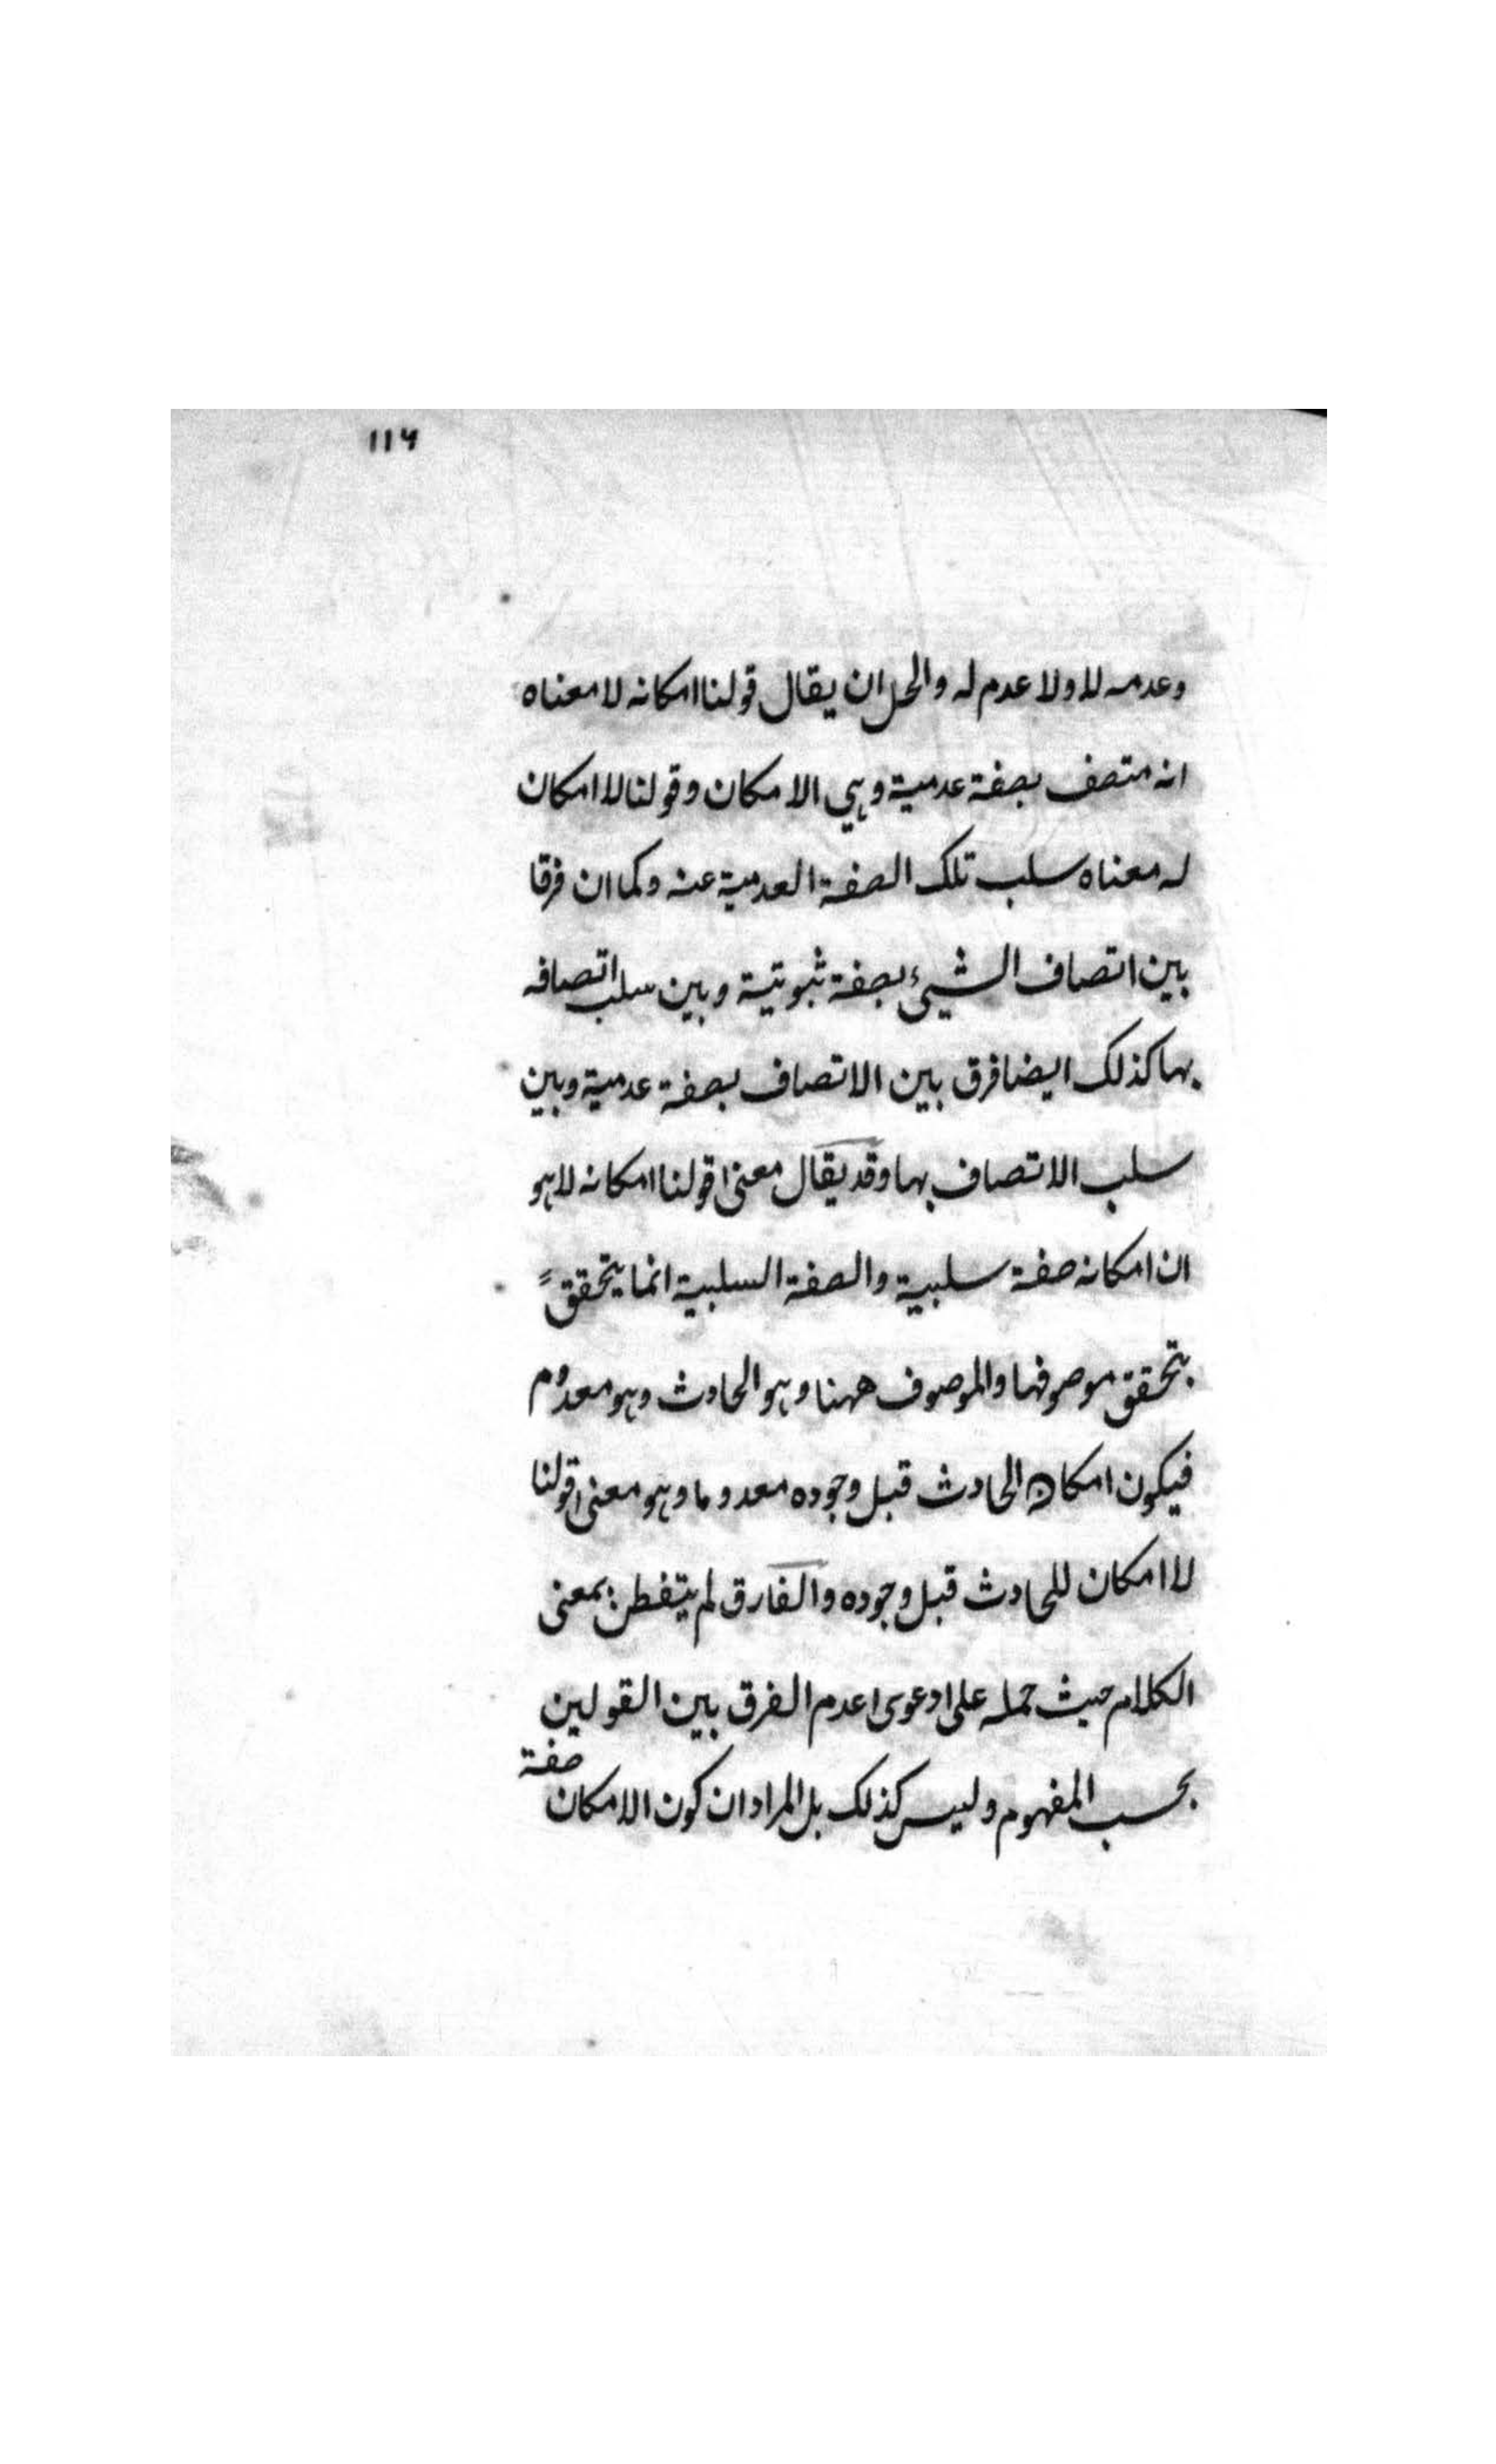 ١١٦
وعدمه لا ولا عدم له والحل ان يقال قولنا امكانه لا معناه
انه متصف بصفة عدمية وهي الامكان وقولنا لا امكان
له معناه سلب تلك الصفة العدمية عنه وكما ان فرقا
بين اتصاف الشيئ بصفة ثبوتية وبين سلب اتصافه
بها كذلك ايضا فرق بين الاتصاف بصفة عدمية وبين
سلب الاتصاف بها وقد يقال معنى قولنا امكانه لا هو
ان امكانه صفة سلبية والصفة السلبية انما يتحقق
بتحقق موصوفها والموصوف ههنا وهو الحادث وهو معدوم
فيكون امكان الحادث قبل وجوده معدوما وهو معنى قولنا
لا امكان للحادث قبل وجوده والفارق لم يتفطن بمعنى
الكلام حيث حمله على دعوى عدم الفرق بين القولين
بحسب المفهوم وليس كذلك بل المراد ان كون الامكان
صفة